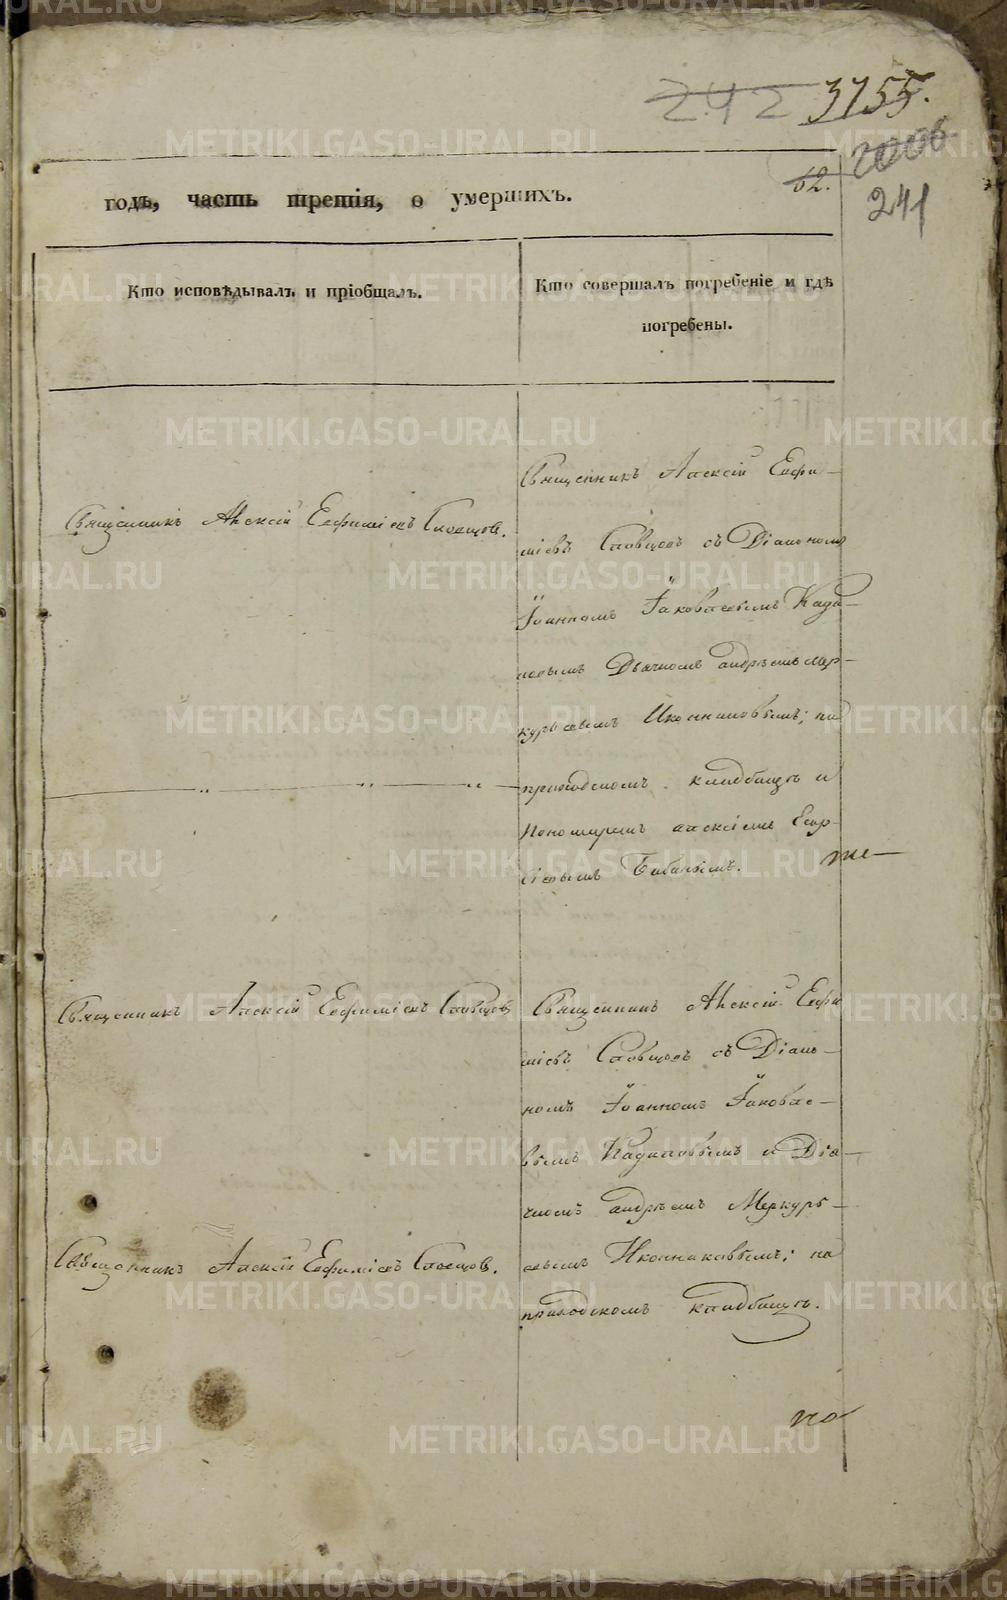 242 3155.
62.
2006
241
годъ, часть третія, о умершихъ.
Кто исповѣдывалъ и пріобщалъ.
Кто совершалъ погребеніе и гдѣ
погребены.
Священникъ Алексій Евфиміевъ Словцовъ.
Священникъ Алексій Евфи-
міевъ Словцовъ съ Діакономъ
Іоанномъ Іаковлевымъ Кади-
ловымъ Дьячкомъ андреемъ мер-
курьевымъ Иконниковымъ; на
приходскомъ кладбищѣ и
Пономаремъ алексіемъ
Священникъ Алексій Евфиміевъ Словцовъ
Священникъ Алексій Евфи
міевъ Словцовъ съ Діако-
номъ Іоанномъ Іаковле-
вымъ Кадиловымъ и Дья-
чкомъ андреемъ Меркурь-
евымъ Иконниковымъ; на
приходскомъ кладбищѣ.
Священникъ Алексій Евфиміевъ Словцовъ.
по
METRIKI.GASO-URAL.RU